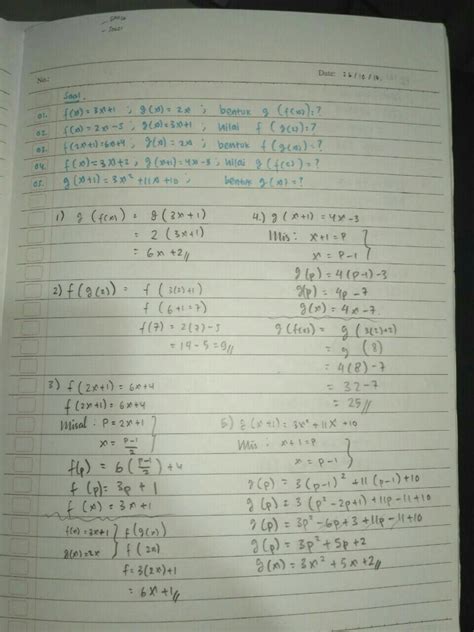 No.:
Date: 26/10/16
Soal
01. f(x) = 3x+1 ; g(x) = 2x ; bentuk g(f(x)) = ?
02. f(x) = 2x-5 ; g(x) = 3x+1 ; nilai f(g(2)) = ?
03. f(2x+1) = 6x+4 ; g(x) = 2x ; bentuk f(g(x)) = ?
04. f(x) = 3x+2 ; g(x+1) = 4x-3 ; nilai g(f(2)) = ?
05. g(x+1) = 3x² + 11x + 10 ; bentuk g(x) = ?
1) g(f(x)) = g(3x+1)
= 2(3x+1)
= 6x+2//
2) f(g(2)) = f(3(2)+1)
f(6+1=7)
f(7) = 2(7)-5
= 14-5 = 9//
3) f(2x+1) = 6x+4
f(2x+1) = 6x+4
Misal : P = 2x+1
x = p-1/2
f(p) = 6(p-1/2) + 4
f(p) = 3p + 1
f(x) = 3x+1
f(x) = 3x+1 } f(g(x))
g(x) = 2x } f(2x)
f = 3(2x)+1
= 6x+1//
4.) g(x+1) = 4x-3
Mis : x+1 = P
x = P-1
g(p) = 4(p-1)-3
g(p) = 4p-7
g(x) = 4x-7
g(f(x)) = g(3(2)+2)
= g(8)
= 4(8)-7
= 32-7
= 25//
5) g(x+1) = 3x² + 11x + 10
Mis : x+1 = P
x = p-1
g(p) = 3(p-1)² + 11(p-1) + 10
g(p) = 3(p²-2p+1) + 11p-11+10
g(p) = 3p²-6p+3+11p-11+10
g(p) = 3p² + 5p + 2
g(x) = 3x² + 5x + 2//